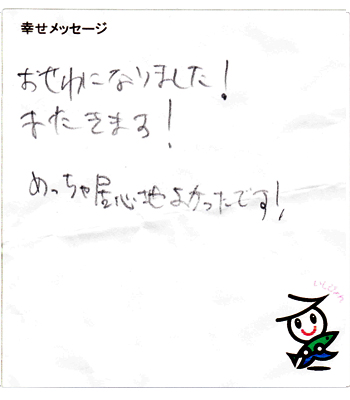 幸せメッセージ
おせわになりました!
またきます!
めっちゃ居心地よかったです!